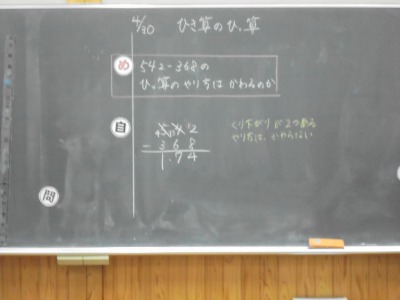 4/30 ひき算のひっ算
め
542-368の
ひっ算のやり方はかわるのか
自
542
-368
174
くり下がりが2つある
やり方は、かわらない
問